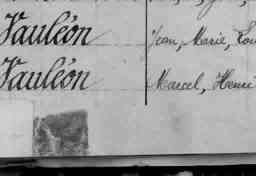 Vauléon Jean, Marie, Lou
Vauléon Marcel, Henri